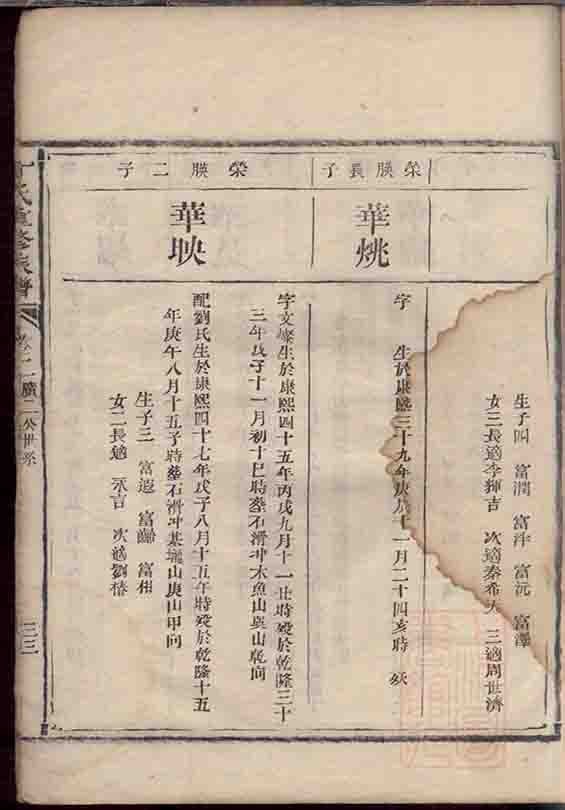 生子四 富潤 富泮 富沅 富澤
女三長適李輝吉 次適秦希 三適周世濟
榮朕長子
華烑
字 生於康熙三十九年庚辰十一月二十四亥時 歿
榮朕二子
華映
字文燦生於康熙四十五年丙戌九月十一丑時歿於乾隆三十
三年戊子十一月初十巳時塟石滑冲木魚山巽山乾向
配劉氏生於康熙四十七年戊子八月十五午時歿於乾隆十五
年庚午八月十五子時塟石滑冲基壠山庚山甲向
生子三 富遐 富 富相
女二長適 永言 次適劉椿
氏重修族譜
卷二 廣二公世系
三三